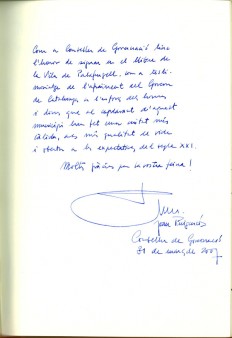 Com a Conseller de Governació tinc
l'honor de signar en el llibre de
la Vila de Palafrugell, com a testi-
moniatge de l'agraïment del Govern
de Catalunya a l'esforç dels homes
i dones que al capdavant d'aquest
municipi han fet una ciutat més
càlida, amb més qualitat de vida
i oberta a les expectatives del segle XXI.
Moltes gràcies per la vostra feina!
Joan Puigcercós
Conseller de Governació
31 de març de 2007